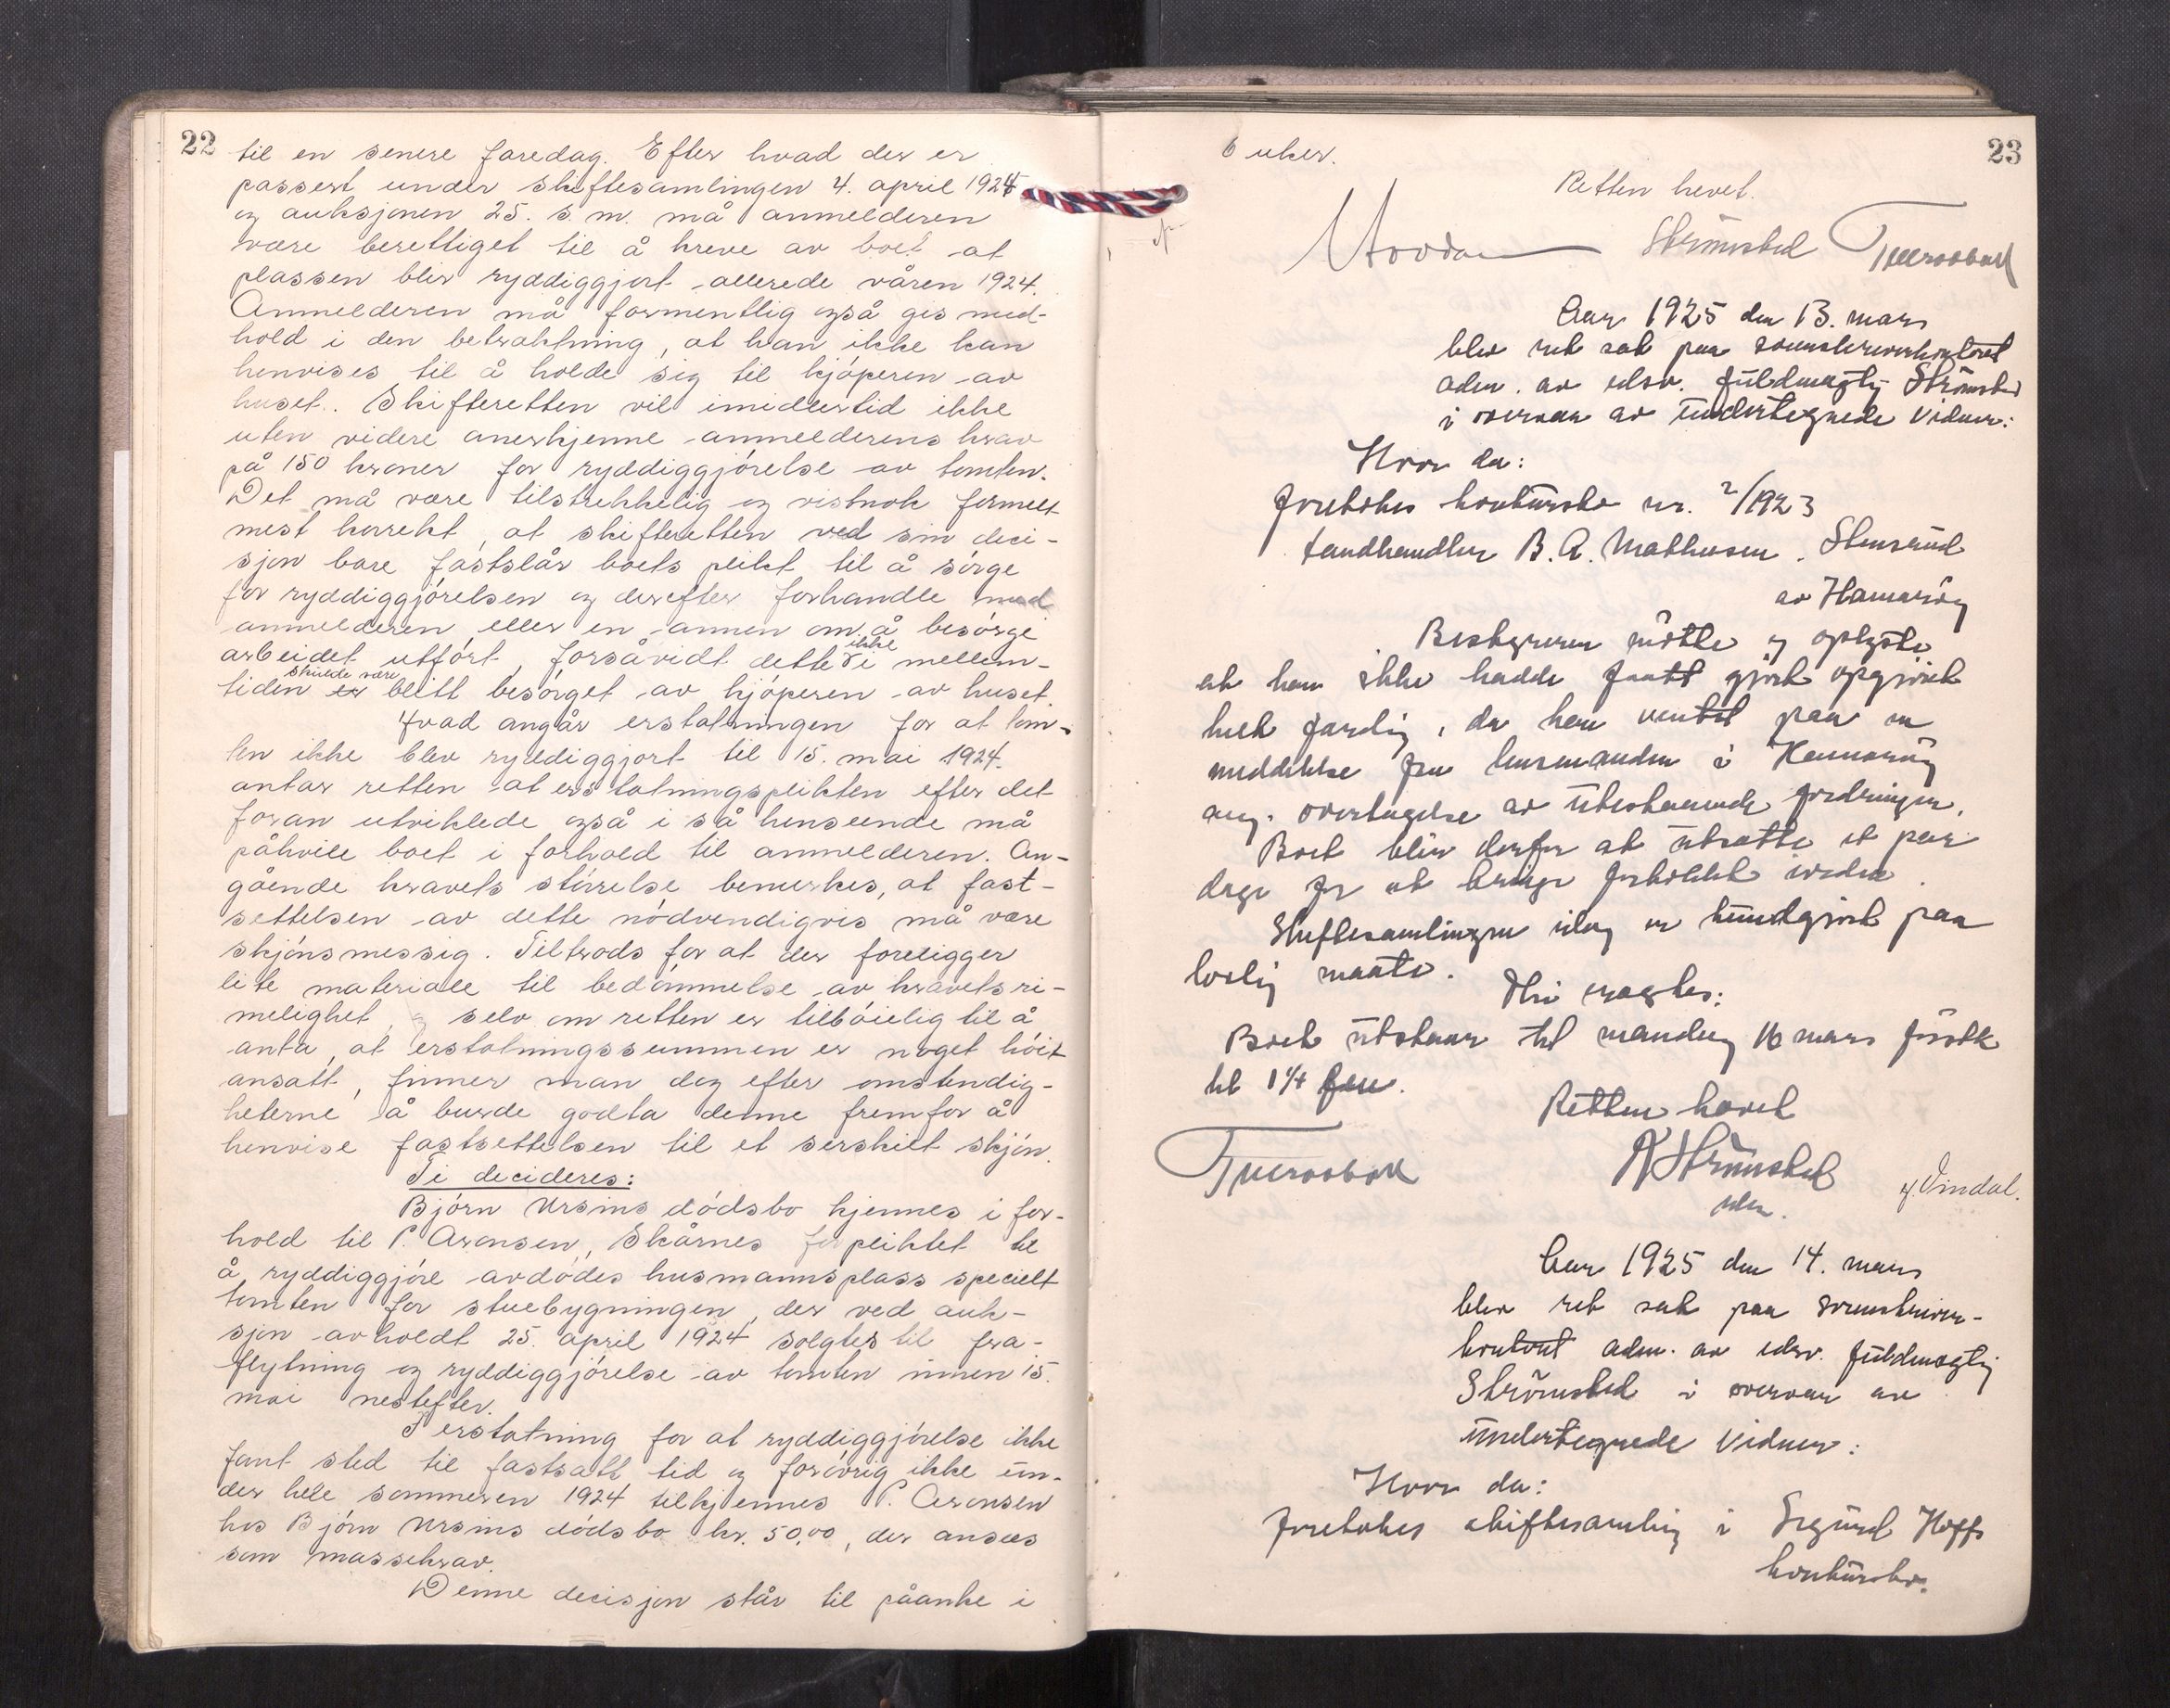 22
til en senere faredag. Efter hvad der er
passert under skiftesamlingen 4. april 1924
og auksjonen 25. s. m. må anmelderen
være berettiget til å kreve av boet at
plassen blir ryddiggjort allerede våren 1924.
Anmelderen må formentlig også gis med-
hold i den betraktning, at han ikke kan
henvises til å holde sig til kjøperen av
huset. Skifteretten vil imidlertid ikke
uten videre anerkjenne anmelderens krav
på 150 kroner for ryddiggjørelse av tomten.
Det må være tilstrekkelig og vistnok formelt
mest korrekt, at skifteretten ved sin deci-
sjon bare fastslår boets plikt til å sørge
for ryddiggjørelsen og derefter forhandle med
anmelderen eller en annen om å besørge
arbeidet utført, forsåvidt dette ikke i mellem-
tiden skulde være blitt besørget av kjøperen av huset.
Hvad angår erstatningen for at tom-
ten ikke blev ryddiggjort til 15. mai 1924.
antar retten at erstatningsplikten efter det
foran utviklede også i så henseende må
påhvile boet i forhold til anmelderen. An-
gående kravets størrelse bemerkes, at fast-
settelsen av dette nødvendigvis må være
skjønsmessig. Tiltrods for at der foreligger
lite materiale til bedømmelse av kravets ri-
melighet, og selv om retten er tilbøielig til å
anta, at erstatningssummen er noget høit
ansatt, finner man dog efter omstendig-
heterne å burde godta denne fremfor å
henvise fastsettelsen til et serskilt skjøn.
Ti decideres:
Bjørn Ursins dødsbo kjennes i for-
hold til P. Aronsen, Skårnes forpliktet til
å ryddiggjøre avdødes husmannsplass specielt
tomten for stuebygningen, der ved auk-
sjon avholdt 25. april 1924 solgtes til fra-
flytning og ryddiggjørelse av tomten innen 15.
mai nestefter.
I erstatning for at ryddiggjørelse ikke
fant sted til fastsatt tid og forøvrig ikke un-
der hele sommeren 1924 tilkjennes P. Aronsen
hos Bjørn Ursins dødsbo kr. 50,00, der ansees
som massekrav.
Denne decisjon står til påanke i
23
6 uker.
Retten hevet.
Strømsted
Aar 1925 den 13. mars
blev ret sat paa sorenskriverkontoret
adm. av edsv. fuldmægtig Strømsted
i overvær av undertegnede vidner:
Hvor da:
Foretokes konkursbo nr. 2/1923
Landhandler B. A. Mathiesen, Stensrud
av Hamarøy
Bestyreren møtte og oplyste
at han ikke hadde faatt gjort opgjøret
helt færdig, da han ventet paa en
meddelelse fra lensmanden i Hamarøy
ang. overtagelse av utestaaende fordringer.
Boet blir derfor at utsætte et par
dage for at bringe forholdet iorden.
Skiftesamlingen idag er kundgjort paa
lovlig maate.
Thi eragtes:
Boet utstaar til mandag 16 mars førstk
kl 1¼ em.
Retten hævet
Strømsted
edsv.
Vindal.
Aar 1925 den 14. mars
blev ret sat paa sorenskriver-
kontoret adm. av edsv. fuldmægtig
Strømsted i overvær av
undertegnede vidner:
Hvor da:
Foretokes skiftesamling i Sigurd Hoffs
konkursbo.